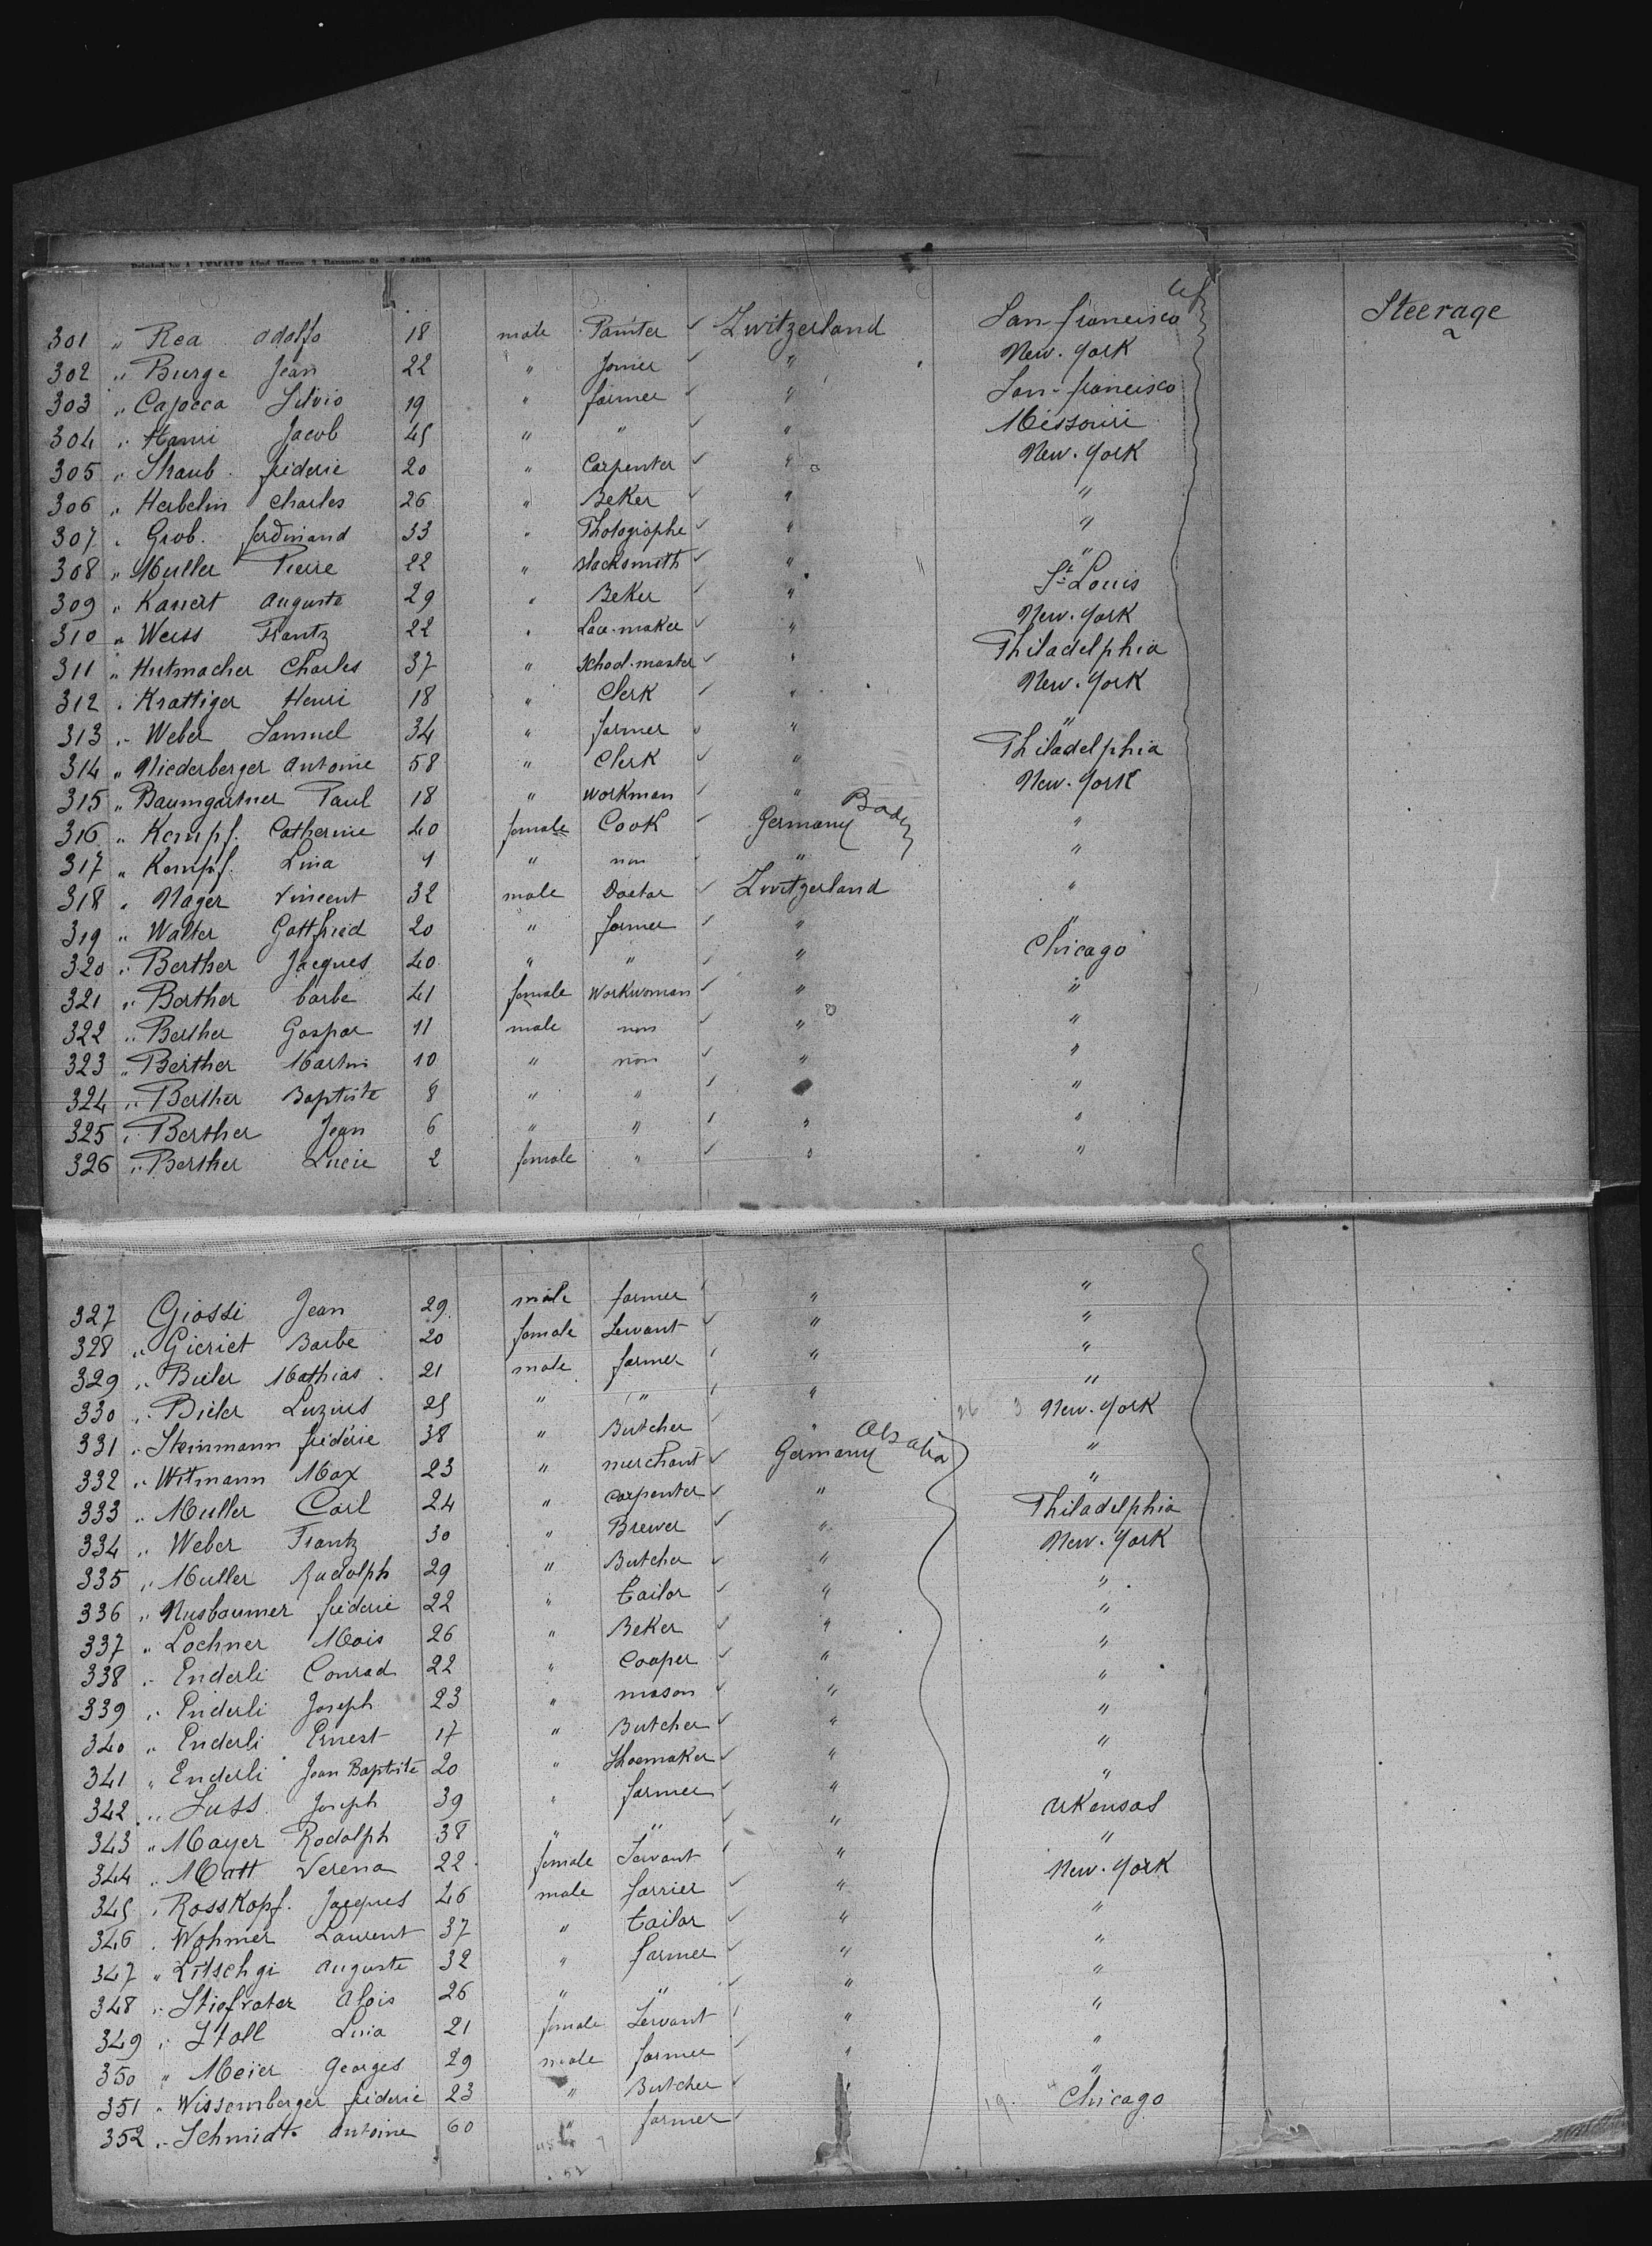 Printed by A. LEMALE Aîné, Havre, 3, Bananne St.
Steerage
301 " Rea Adolfo 18 male Painter Zwitzerland San-francisco
302 " Burge Jean 22 " Joiner " New-York
303 " Capocca Silvio 19 " farmer " San-francisco
304 " Hanri Jacob 45 " " " Missouri
305 " Straub frédéric 20 " Carpenter " New-York
306 " Herbelin Charles 26 " Beker " "
307 " Grob ferdinand 33 " Photographe " "
308 " Muller Pierre 22 " blacksmith " "
309 " Kanert Auguste 29 " Beker " St Louis
310 " Weiss Frantz 22 " Lace-maker " New-York
311 " Hutmacher Charles 37 " School-master " Philadelphia
312 " Krattiger Henri 18 " Clerk " New-York
313 " Weber Samuel 34 " farmer " "
314 " Niederberger Antoine 58 " Clerk " Philadelphia
315 " Baumgartner Paul 18 " Workman " New-York
316 " Kempf Catherine 40 female Cook Germany Baden "
317 " Kempf Lina 4 " non " "
318 " Nager Vincent 32 male Doctor Zwitzerland "
319 " Walter Gottfried 20 " farmer " "
320 " Berther Jacques 40 " " " Chicago
321 " Berther barbe 41 female Workwoman " "
322 " Berther Gaspar 11 male non " "
323 " Berther Martin 10 " non " "
324 " Berther Baptiste 8 " " "
325 " Berther Jean 6 " " " "
326 " Berther Lucie 2 female " " "
327 Giossi Jean 29 male farmer " "
328 " Gieriet Barbe 20 female Servant " "
329 " Bieler Mathias 21 male farmer " "
330 " Bieler Luzius 25 " " " "
331 " Steinmann frédéric 38 " Butcher " New-York
332 " Witmann Max 23 " merchant Germany Alsatia "
333 " Muller Carl 24 " Carpenter " "
334 " Weber Frantz 30 " Brewer " Philadelphia
335 " Muller Rudolph 29 " Butcher " New-York
336 " Nusbaumer frédéric 22 " tailor " "
337 " Lochner Alois 26 " Beker " "
338 " Enderli Conrad 22 " Cooper " "
339 " Enderli Joseph 23 " mason " "
340 " Enderli Ernest 17 " Butcher " "
341 " Enderli Jean Baptiste 20 " Shoemaker " "
342 " Luss Joseph 39 " farmer " "
343 " Mayer Rodolph 38 " " " Arkensas
344 " Matt Verena 22 female Servant " "
345 " Rosskopf Jacques 46 male farrier " New-York
346 " Wohmer Laurent 37 " tailor " "
347 " Litschgi Auguste 32 " farmer " "
348 " Stiefvater Alois 26 " " " "
349 " Stoll Lina 21 female Servant " "
350 " Meïer Georges 29 male farmer " "
351 " Wissemberger frédéric 23 " Butcher "
352 " Schmidt Antoine 60 " farmer Chicago